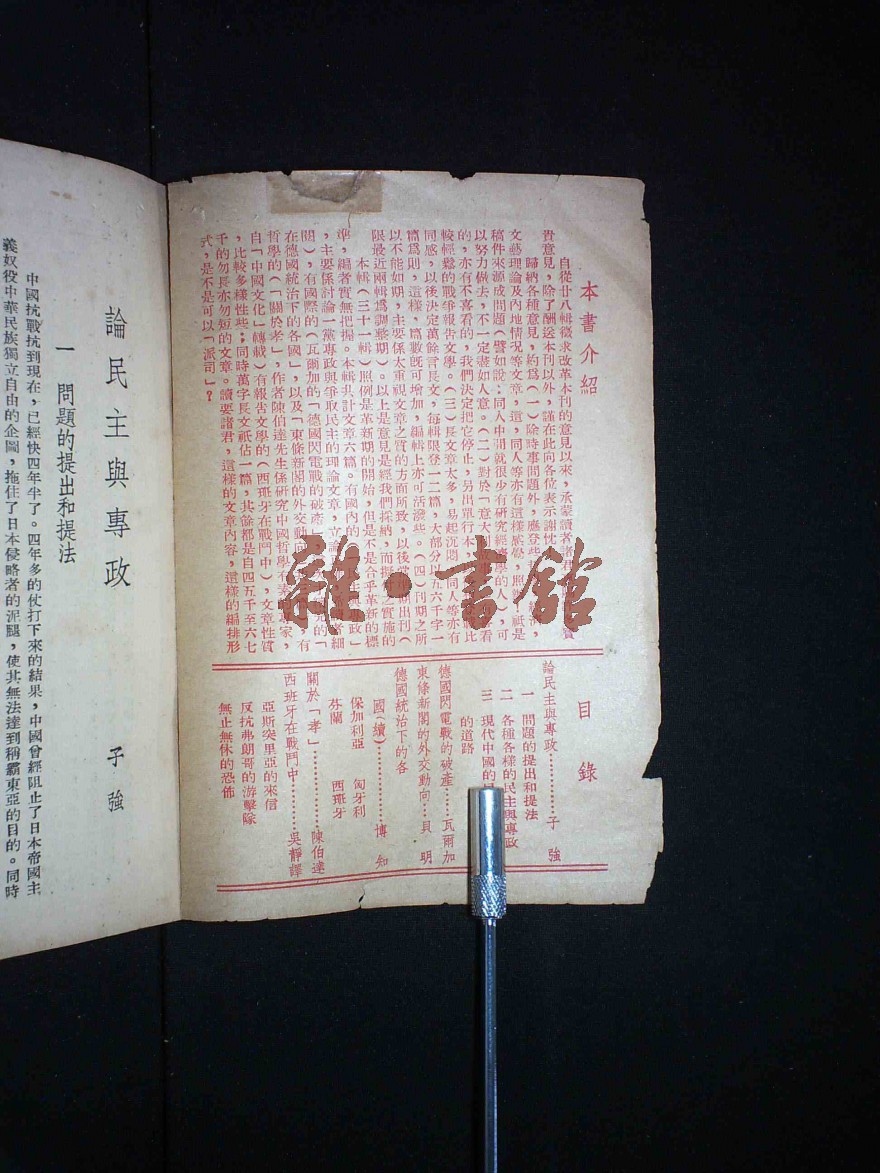 本書介紹
自從廿八輯徵求改革本刊的意見以來，承蒙讀者諸君
貴意見，除了酬送本刊以外，謹在此向各位表示謝忱
歸納各種意見，約為（一）除時事問題外，應登些
文藝理論及內地情況等文章，這，同人等亦有這樣感覺，照
稿件來源成問題（譬如說：同人中間就很少有研究經
以努力做去，不一定盡如人意。（二）對於「意大
的，亦有不喜看的，我們決定把它停止，另出單行本
較輕鬆的戰爭報告文學。（三）長文章太多，易起沉悶
同感，以後決定萬餘言長文，每輯限登一二篇，大部分以五六千字一
篇為則，這樣，篇數既可增加，編輯上亦可活潑些。（四）刊期之所
以不能如期，主要係太重視文章之質的方面所致，以後
限最近兩輯為調整期）。以上是意見是經我們採納，而
本輯（三十輯）照例是革新期的開始，但是不是合乎革新的標
準，編者實無把握。本輯共計文章六篇。有國內的
，主要係討論一黨專政與爭取民主的理論文章，立論
閱），有國際的（瓦爾加的「德國閃電戰的破產」
在德國統治下的各國」，以及「東條新閣的外交動向
哲學的（「關於孝」，作者陳伯達先生係研究中國哲學
自「中國文化」轉載）有報告文學的（西班牙在戰鬥中），文章性質
，比較多樣性些；同時萬字長文祇佔一篇，其餘都是自四五千至六七
千的勿長亦勿短的文章。讀要諸君，這樣的文章內容，這樣的編排形
式，是不是可以「派司」？
雜·書館
目錄
論民主與專政………子強
一 問題的提出和提法
二 各種各樣的民主與專政
三 現代中國的
的道路
德國閃電戰的破產……瓦爾加
東條新閣的外交動向…貝明
德國統治下的各
國（續）……博知
保加利亞 匈牙利
芬蘭 西班牙
關於「孝」………陳伯達
西班牙在戰鬥中………吳靜譯
亞斯突里亞的來信
反抗弗朗哥的游擊隊
無止無休的恐怖
論民主與專政
子強
一 問題的提出和提法
中國抗戰抗到現在，已經快四年半了。四年多的仗打下來的結果，中國曾經阻止了日本帝國主
義奴役中華民族獨立自由的企圖，拖住了日本侵略者的泥腿，使其無法達到稱霸東亞的目的。同時